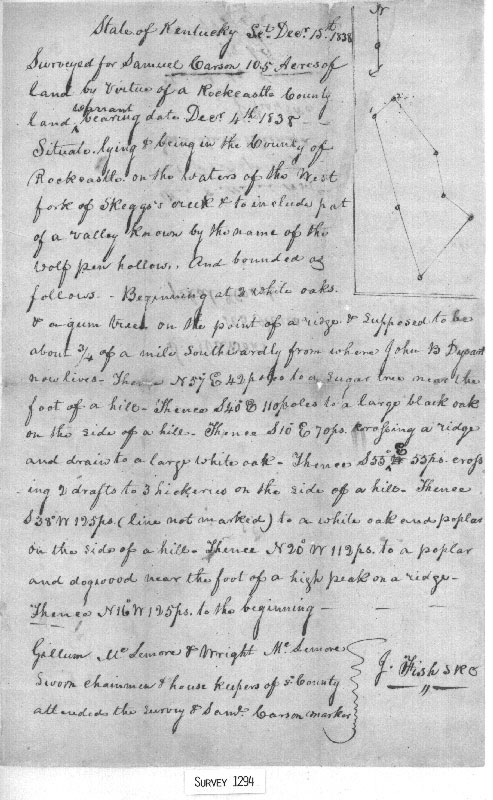 State of Kentucky Sct. Decr. 15th 1838
N
Surveyed for Samuel Carson 105 Acres of
land by Virtue of a Rockcastle County
warrant
land bearing date Decr. 4th 1838 –
Situate lying & being in the County of
Rockcastle on the waters of the West
fork of Skeggs's creek & to include pat
of a valley known by the name of the
wolf pen hollow. And bounded as
follows. - Beginning at 2 white oaks.
& a gum trees on the point of a ridge & supposed to be
about 3/4 of a mile Southwardly from where John B
now lives - Thence N 57° E 42 poles to a sugar tree near the
foot of a hill - Thence S 40° E 110 poles to a large black oak
on the side of a hill - Thence S 10° E 70 ps. crossing a ridge
and drain to a large white oak - Thence S 55° E 55 ps. cross
ing 2 drafts to 3 hickeries on the side of a hill - Thence
S 38° W 125 ps. (line not marked) to a white oak and poplar
on the side of a hill - Thence N 20° W 112 ps. to a poplar
and dogwood near the foot of a high peak on a ridge -
Thence N 16° W 125 ps. to the beginning —
Gillum Mc Lemore & Wright Mc Lemore
Sworn chainmen & house keepers of sd. County
attended the survey & Saml. Carson marker
J. Fish S R C
SURVEY 1294